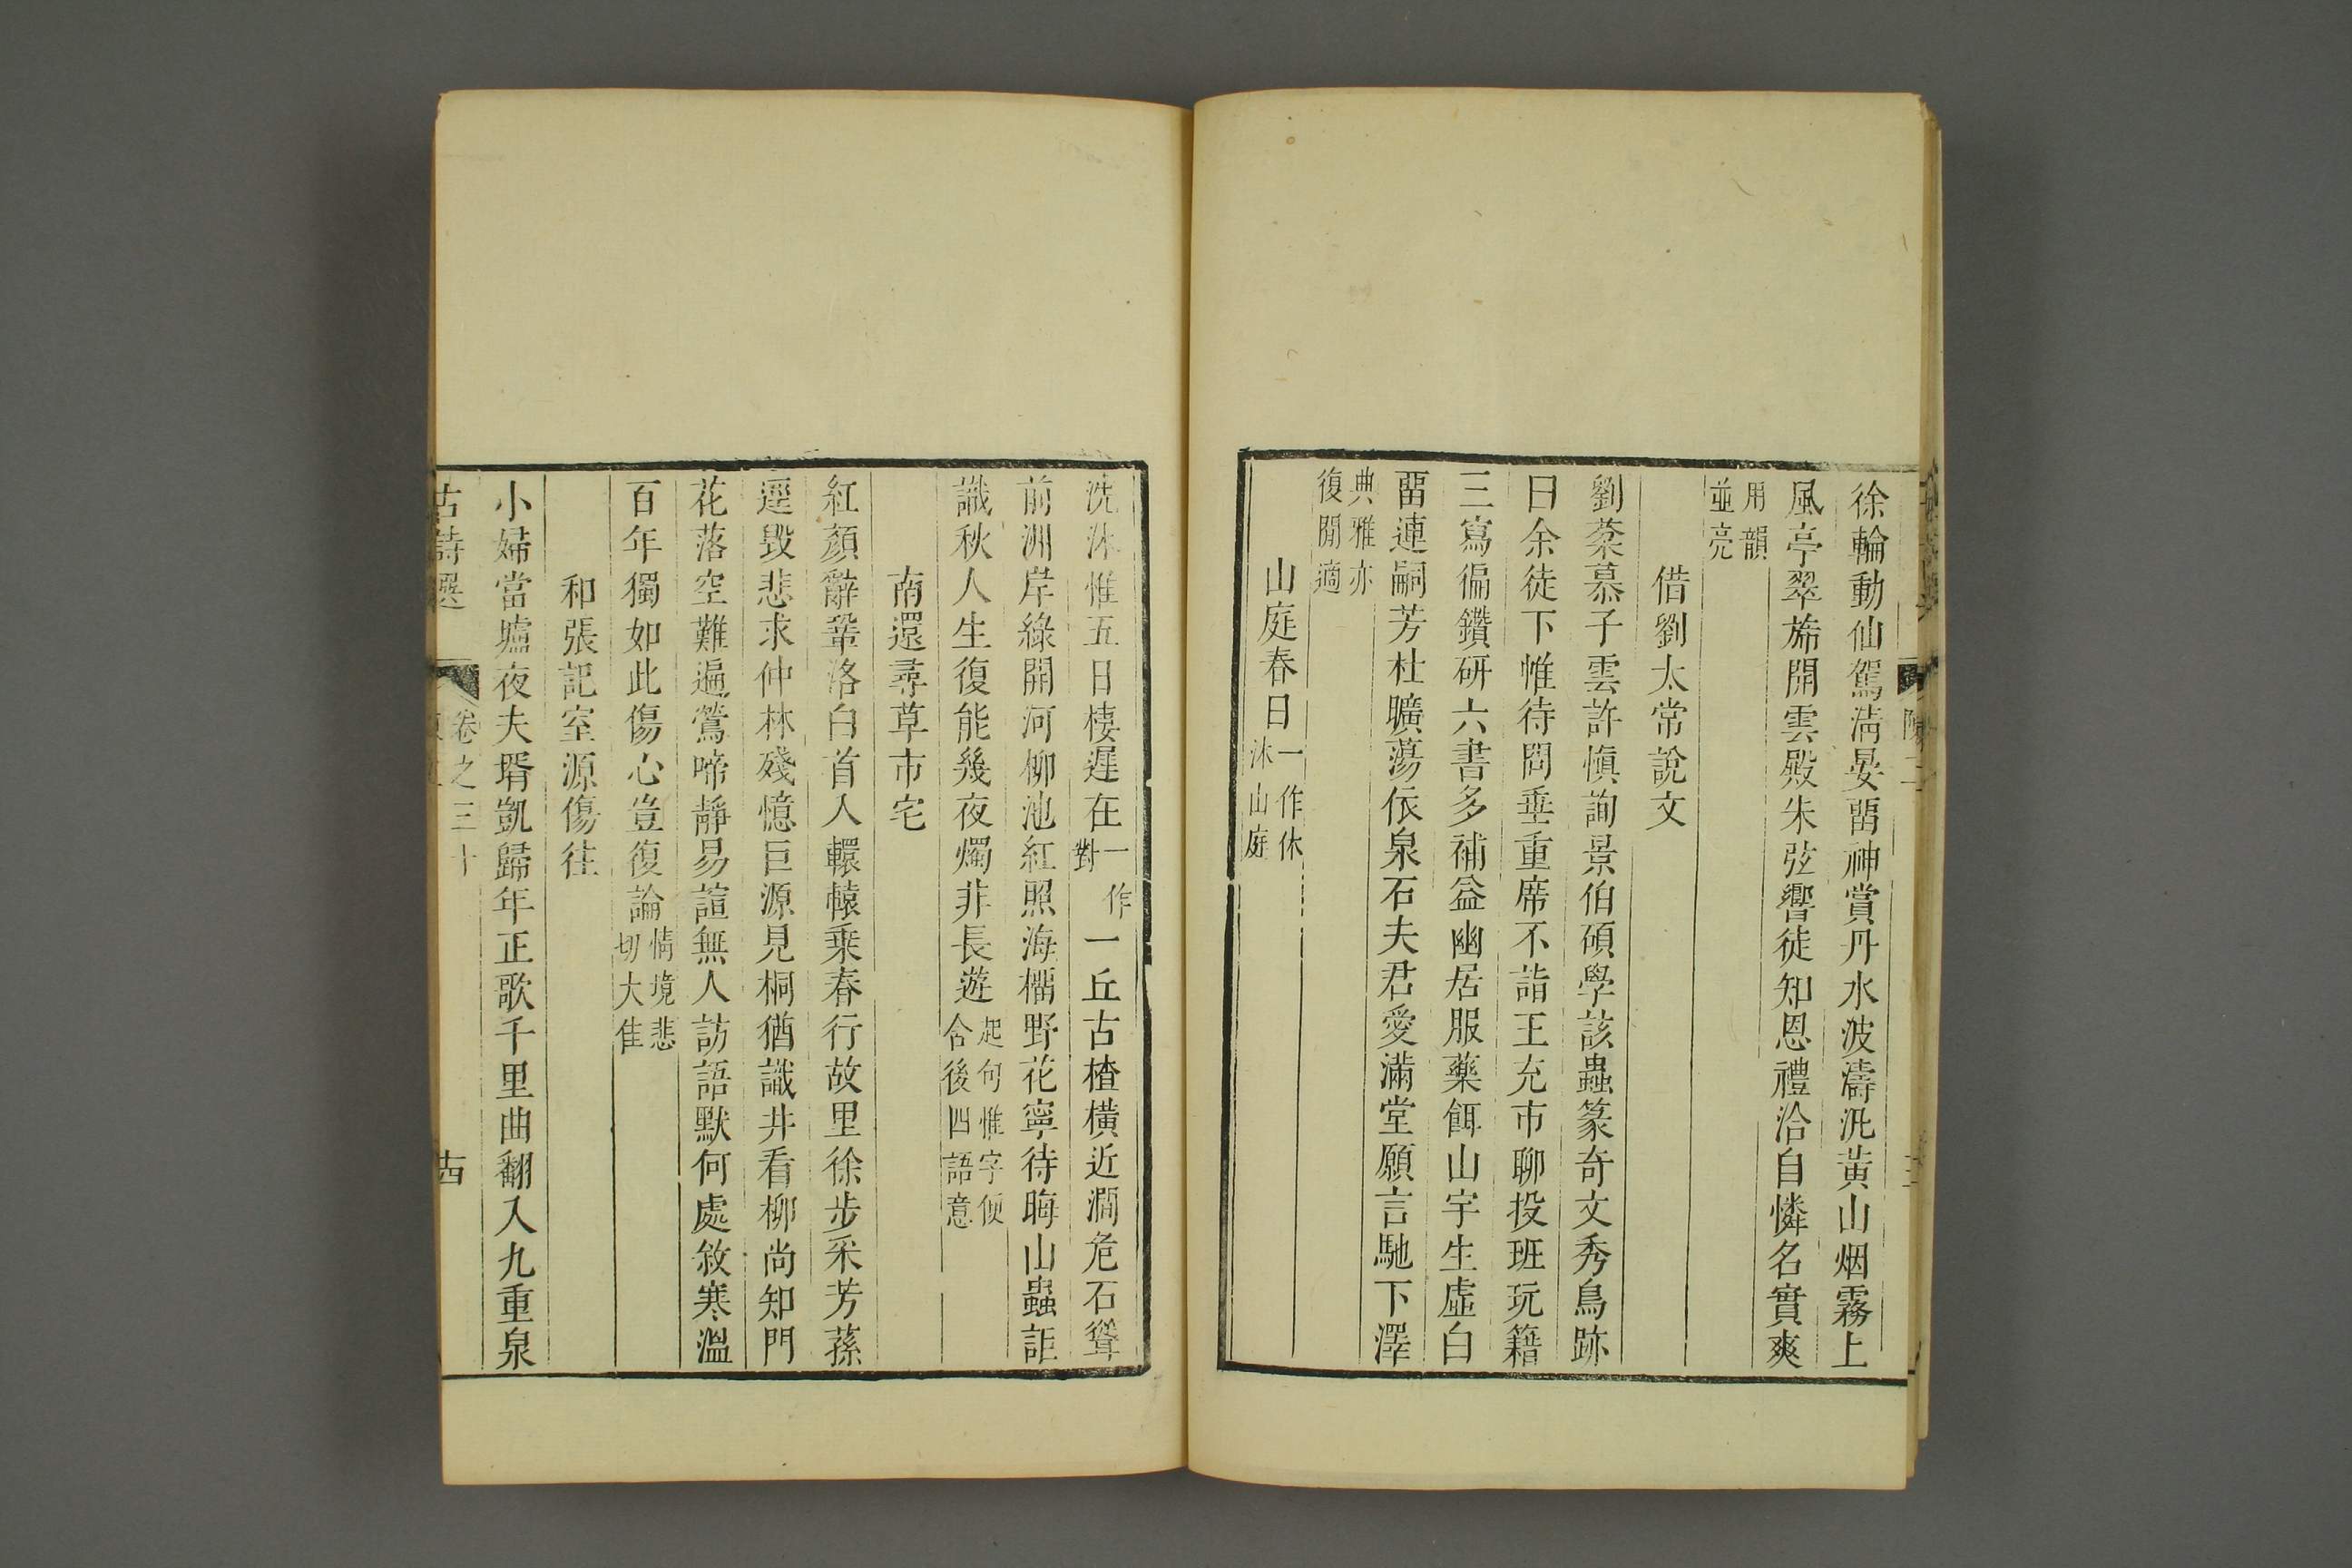 徐輪動仙駕淸晏畱神賞丹水波濤汎黃山烟霧上
風亭翠旆開雲殿朱弦響徒知恩禮洽自憐名實爽
用韻
並亮
借劉太常說文
劉棻慕子雲許愼詢景伯碩學該蟲篆奇文秀鳥跡
日余徒下帷待問垂重席不詣王充市聊投班玩籍
三寫徧鑽硏六書多補益幽居服藥餌山宇生虛白
畱連嗣芳杜曠蕩依泉石夫君愛滿堂願言馳下澤
典雅亦
復閒適
山庭春日一作休沐山庭
洗沐惟五日棲遲在一作對一丘古楂橫近澗危石聳
前洲岸綠開河柳池紅照海榴野花寧待晦山蟲詎
識秋人生復能幾夜燭非長遊起句惟字便含後四語意
南還尋草市宅
紅顏辭鞏洛白首入轘轅乗春行故里徐步采芳蓀
逕毀悲求仲林殘憶巨源見桐猶識井看柳尚知門
花落空難遍鶯啼靜易諠無人訪語默何處敘寒溫
百年獨如此傷心豈復論情境悲切大佳
和張記室源傷往
小婦當壚夜夫壻凱歸年正歌千里曲翻入九重泉
古詩選 卷之三十 古